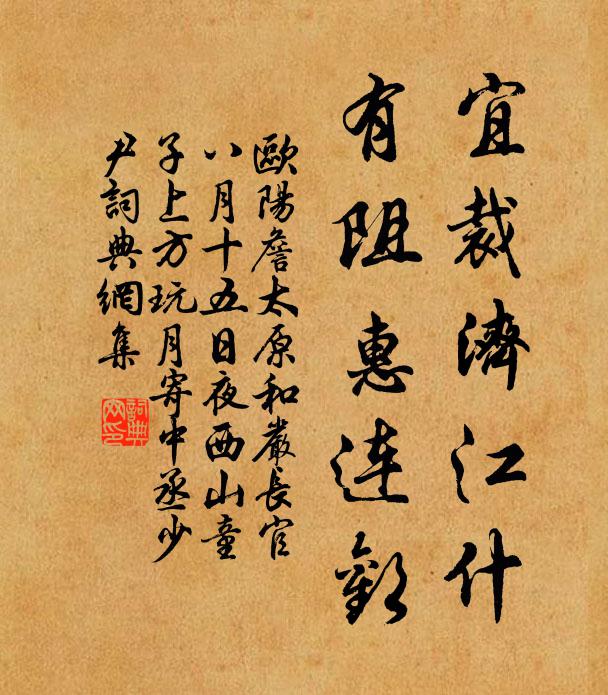 宜裁濟江什
有阻惠連歡
歐陽詹太原和嚴長官
八月十五日夜西山童
子上方玩月寄中丞少
尹詞典網集
詞典
网印